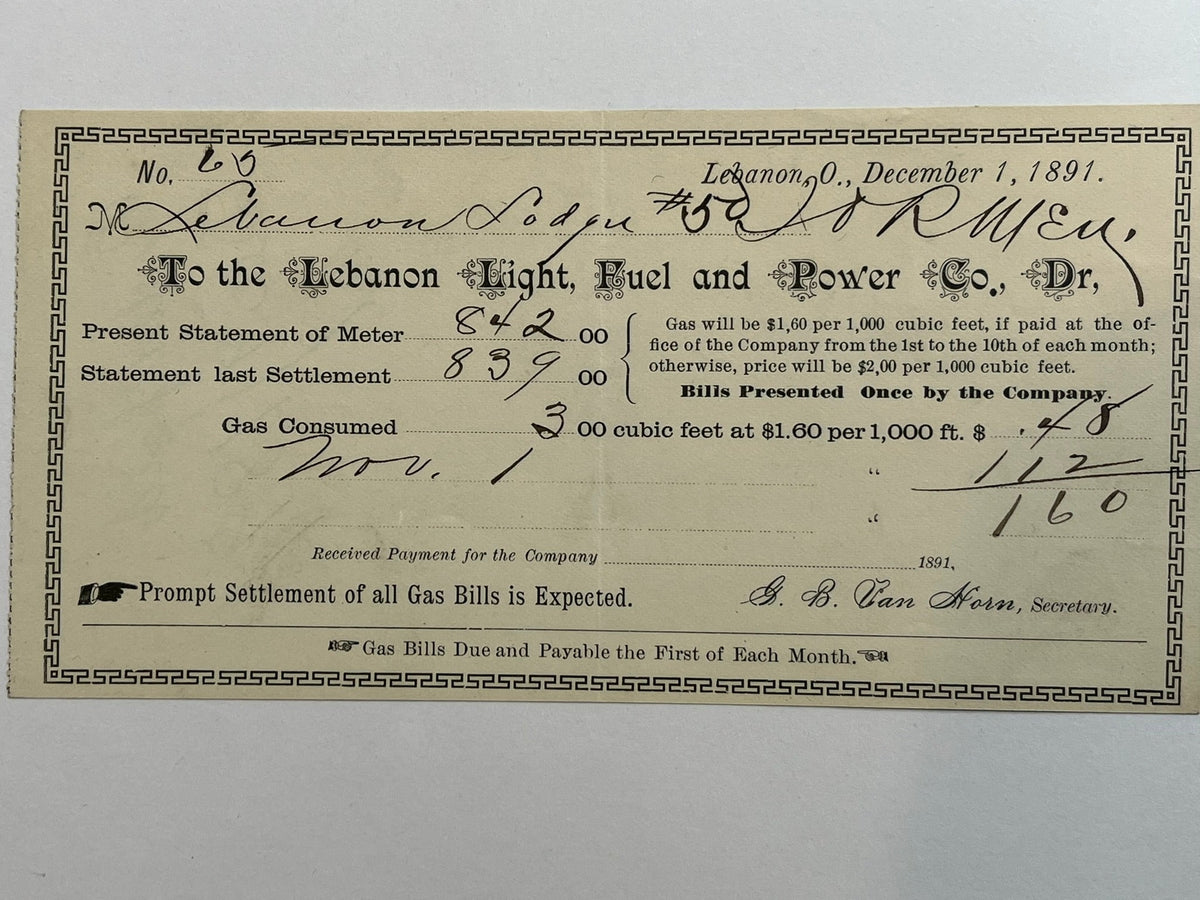 No. 65 Lebanon, O., December 1, 1891.
M Lebanon Lodge #50
To the Lebanon Light, Fuel and Power Co., Dr,
Present Statement of Meter 842 00
Statement last Settlement 839 00
Gas will be $1,60 per 1,000 cubic feet, if paid at the of-
fice of the Company from the 1st to the 10th of each month;
otherwise, price will be $2,00 per 1,000 cubic feet.
Bills Presented Once by the Company.
Gas Consumed 3 00 cubic feet at $1.60 per 1,000 ft. $ .48
Nov. 1 " 112
" 160
Received Payment for the Company 1891,
Prompt Settlement of all Gas Bills is Expected. G. B. Van Horn, Secretary.
Gas Bills Due and Payable the First of Each Month.